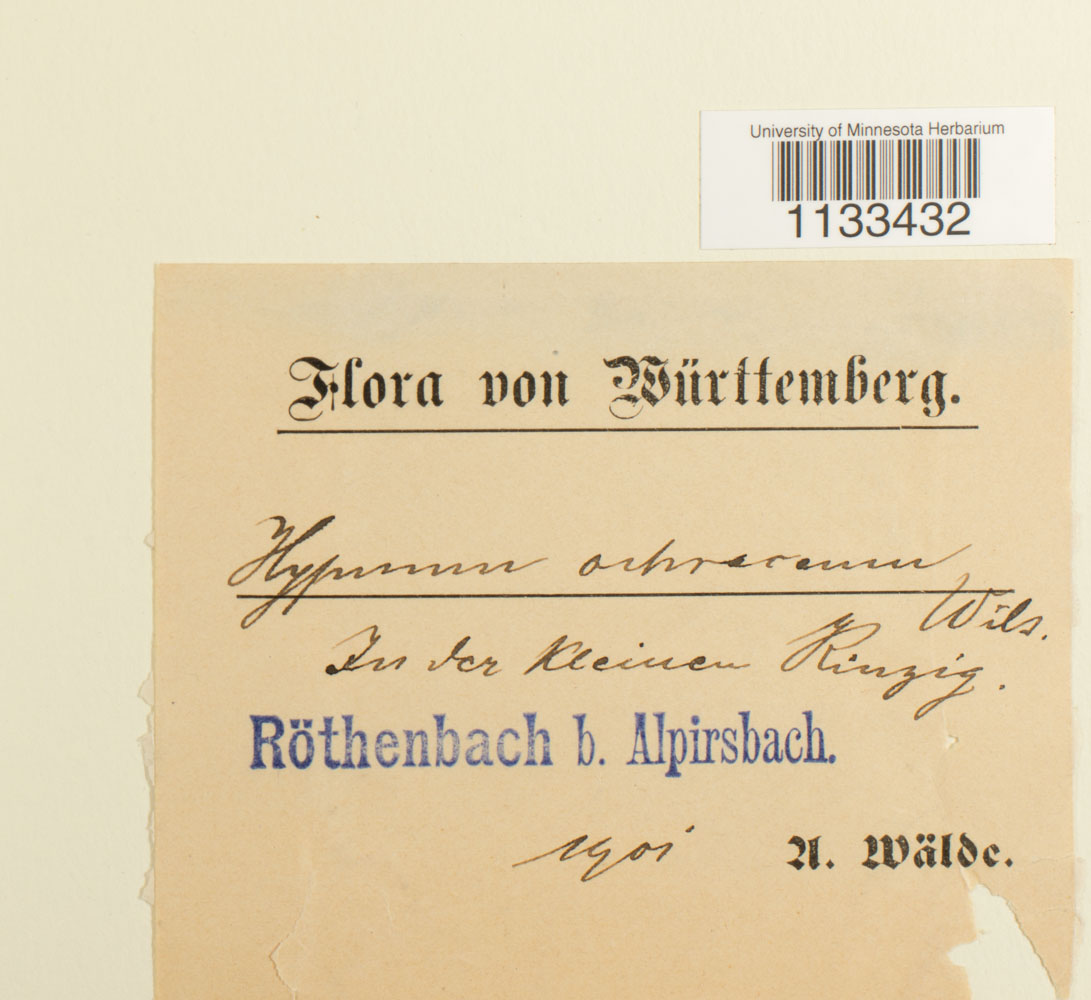 University of Minnesota Herbarium
1133432
Flora von Württemberg.
Hypnum ochraceum
Wils.
In der kleinen Kinzig.
Röthenbach b. Alpirsbach.
1901 A. Wälde.